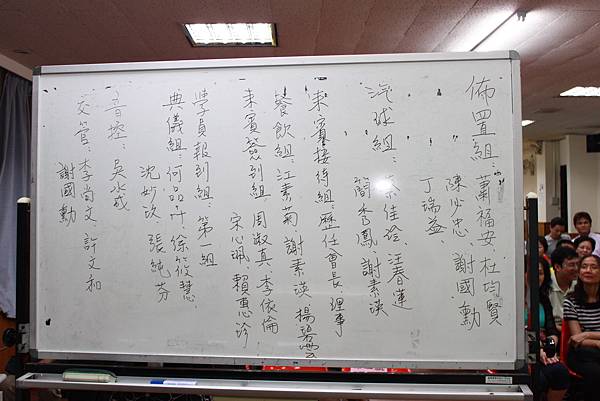 佈置組：蕭福安、杜均賢
陳少忠、謝國勳
丁瑞益、
汽球組：佳玲、汪春蓮
簡秀鳳、謝素瑛
來賓接待組：歷任會長、理事
餐飲組：江素菊、謝素瑛、楊碧雲
來賓簽到組：周淑真、李依倫
宋心珮、賴惠珍
學員報到組：第一組
典儀組：何品叶、徐筱慧
沈妙玫、張純芬
音控：吳水成
交管：李尚文、許文和
謝國勳